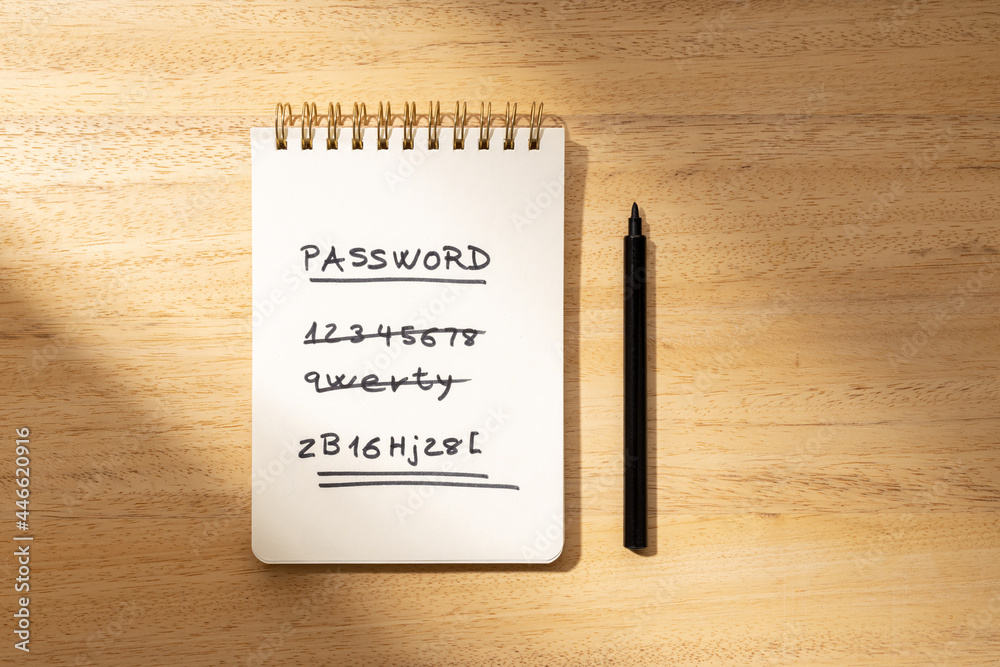 PASSWORD
12345678
qwerty
zB16Hj28[
Adobe Stock | #446620916